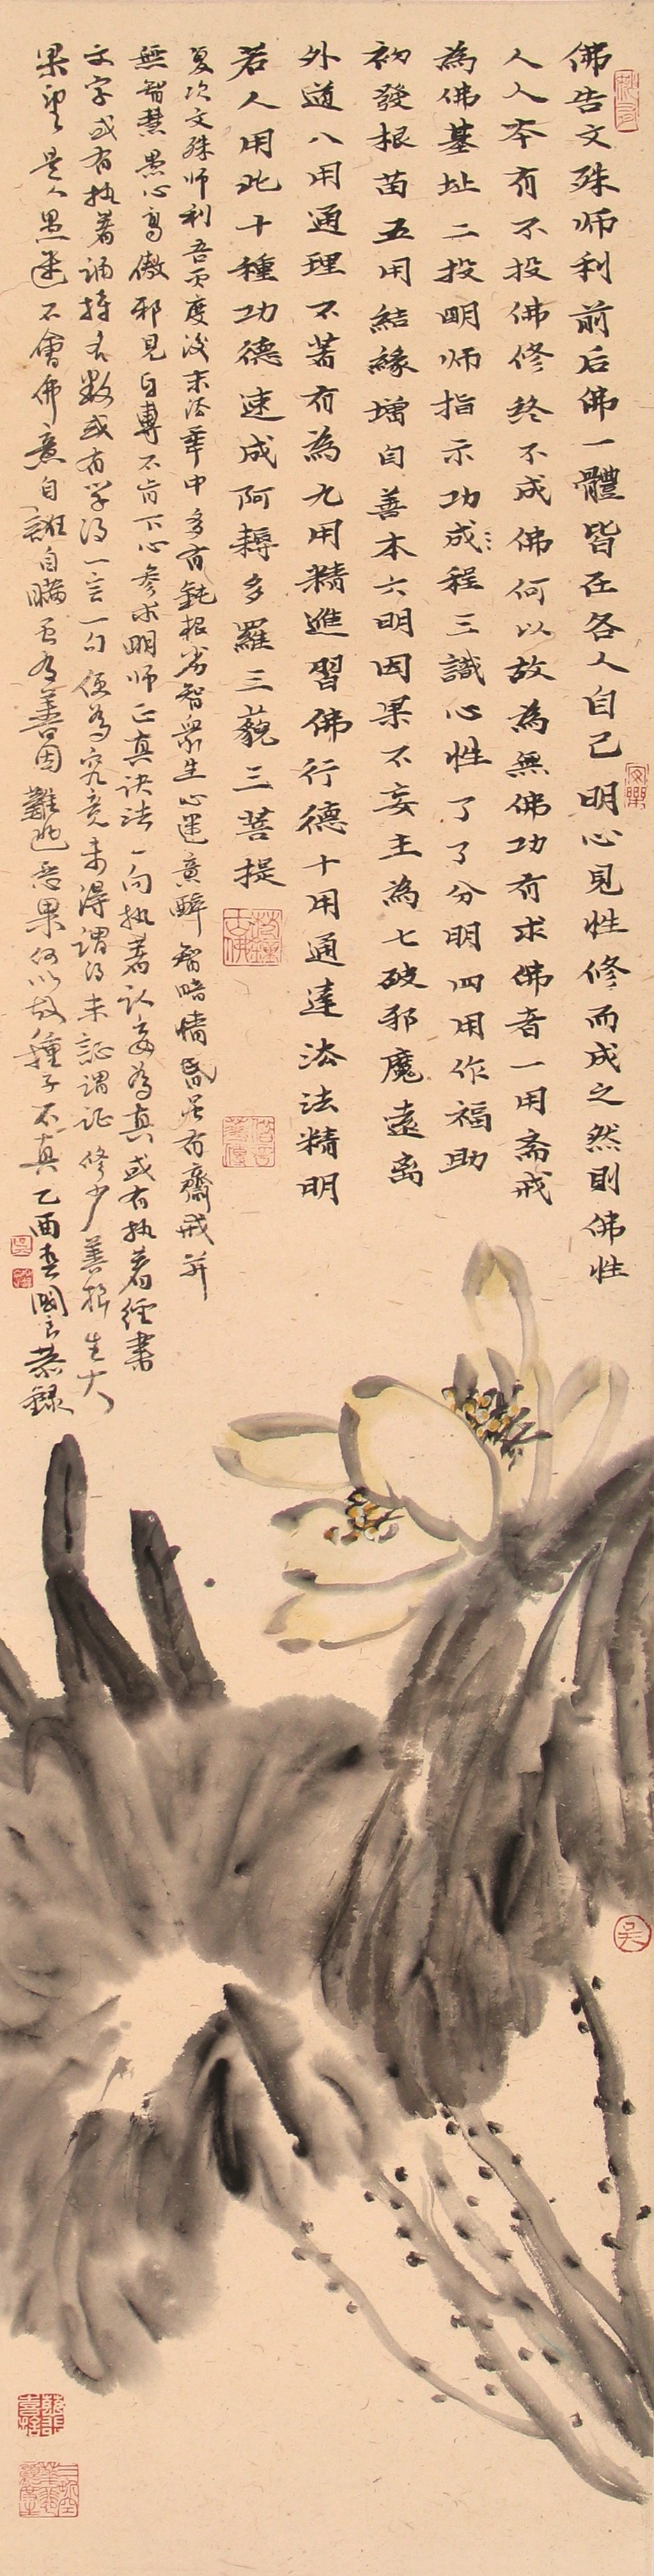 佛告文殊师利前后佛一體皆在各人自己明心見性修而成之然則佛性
人人本有不投佛修终不成佛何以故為無佛功有求佛者一用斋戒
為佛基址二投明师指示功成程三識心性了了分明四用作福助
初發根苗五用結緣增自善本六明因果不妄主為七破邪魔遠离
外道八用通理不著有為九用精進習佛行德十用通達法法精明
若人用此十種功德速成阿耨多羅三藐三菩提
复次文殊师利吾灭度後末法世中多有鈍根劣智衆生心迷意醉智暗情昏虽有齋戒并
無智慧愚心高傲邪見自專不肯下心參求明师正真诀法一向执着认妄為真或有执着经書
文字或有执着诵持名数或有学得一言一句便為究竟未得謂得未証謂证修少善根生大
果望是人愚迷不會佛意自誑自瞞虽有善因難逃恶果何以故種子不真乙酉李國良恭録
吴